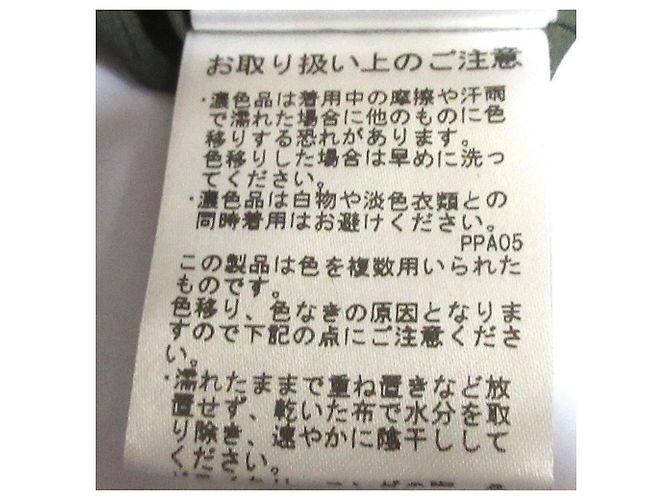 お取り扱い上のご注意
・濃色品は着用中の摩擦や汗雨
で濡れた場合に他のものに色
移りする恐れがあります。
色移りした場合は早めに洗っ
てください。
・濃色品は白物や淡色衣類との
同時着用はお避けください。
PPA05
この製品は色を複数用いられた
ものです。
色移り、色なきの原因となりま
すので下記の点にご注意くださ
い。
・濡れたままで重ね置きなど放
置せず、乾いた布で水分を取
り除き、速やかに陰干しして
ください。